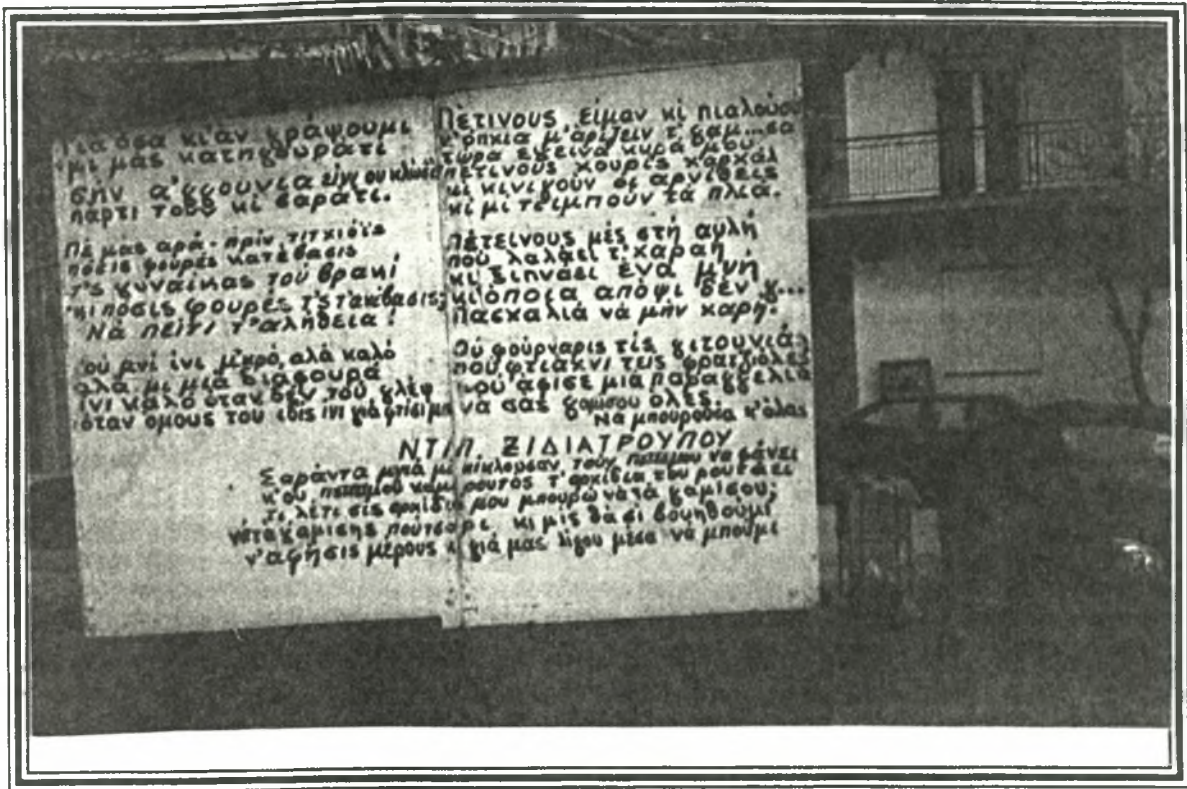 Γιὰ ὅσα κι'ἂν γράψουμι
μι μᾶς κατηγουρᾶτι
σὴν α'γγουνία εἶνι ου κλωσ
πάρτι τοὺν κὶ βαρᾶτι.
Πέ μας ἀρά-πρὶν τιτχιόϊς
πόσις φουρὲς κατέβασις
τ'ς γυναίκας τοῦ βρακί
κι πόσις φουρὲς τ'ς τακίβασις;
Νὰ πεῖτι τ'αλήθεια!
οὑ μνί ἱνι μ'κρό, αλὰ καλό
αλὰ μι μιὰ διαφουρά
ἱνι καλὸ ὅταν δὲν τοῦ γλέφ
ὅταν ὅμους του ἰδῖς ἰνι γιὰ φτίσιμπ
Πέτινους εἶμαν κὶ πιαλοῦσα
κ'ὅπκια μ'ἀρίζειν τ' γαμ...σα
τώρα ἔγεινα κυρά μου
πετινοὺς χουρὶς καρκάλ
κὶ κινιγοῦν οἱ ἀρνίθεις
κὶ μὶ τσιμποῦν τὰ πλιά.
Πέτεινους μὲς στὴ αυλή
ποὺ λαλάει τ'χαραή
κι ξιπνάει ἕνα μνή
κι'ὅποια απόψι δὲν γ...
Πασχαλιὰ νὰ μὴν χαρῆ.
Οὑ φούρναρις τῖς γιτουνιᾶς
ποὺ φτιάχνι τοὺς φρατζιόλες
μοὺ ἄφισε μιὰ παραγγελιά
νὰ σᾶς γαμισου ὅλες.
Νὰ μπουροῦσα κ'ὅλας
ΝΤΙΠ ΞΙΔΙΑΤΡΟΥΠΟΥ
Σαράντα μνιὰ μὶ κίκλουσαν τοὺν νὰ φάνει
κ'οὑ καμαρουτὸς τ'αρχίδια του ρουτάει
τι λέτι σῖς αρχίδια μου μπουρῶ νὰ τὰ γαμίσου;
νὰ τὰ γαμίσης πούτσαρε κι μῖς θὰ σὶ βουηθοῦμι
ν'αφήσις μέρους κι γιὰ μᾶς λίγου μέσα νὰ μποῦμι